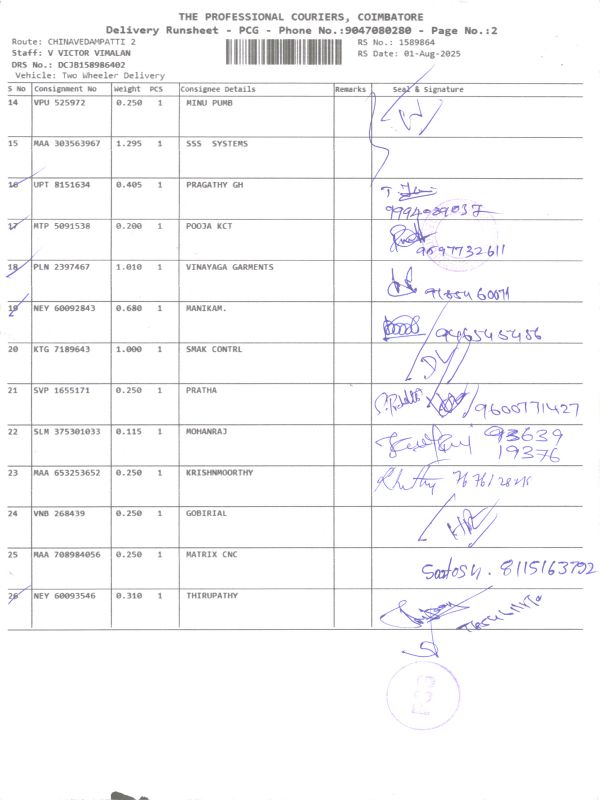 THE PROFESSIONAL COURIERS, COIMBATORE
Delivery Runsheet - PCG - Phone No.:9047080280 - Page No.:2
Route: CHINAVEDAMPATTI 2 RS No.: 1589864
Staff: V VICTOR VIMALAN RS Date: 01-Aug-2025
DRS No.: DCJB158986402
Vehicle: Two Wheeler Delivery
S No Consignment No Weight PCS Consignee Details Remarks Seal & Signature
14 VPU 525972 0.250 1 MINU PUMB
15 MAA 303563967 1.295 1 SSS SYSTEMS
16 UPT 8151634 0.405 1 PRAGATHY GH
17 MTP 5091538 0.200 1 POOJA KCT
9597732611
18 PLN 2397467 1.010 1 VINAYAGA GARMENTS
19 NEY 60092843 0.680 1 MANIKAM.
20 KTG 7189643 1.000 1 SMAK CONTRL
DL
21 SVP 1655171 0.250 1 PRATHA
9600771427
22 SLM 375301033 0.115 1 MOHANRAJ
93639
19376
23 MAA 653253652 0.250 1 KRISHNMOORTHY
24 VNB 268439 0.250 1 GOBIRIAL
25 MAA 708984056 0.250 1 MATRIX CNC
Santosh. 8115163792
26 NEY 60093546 0.310 1 THIRUPATHY